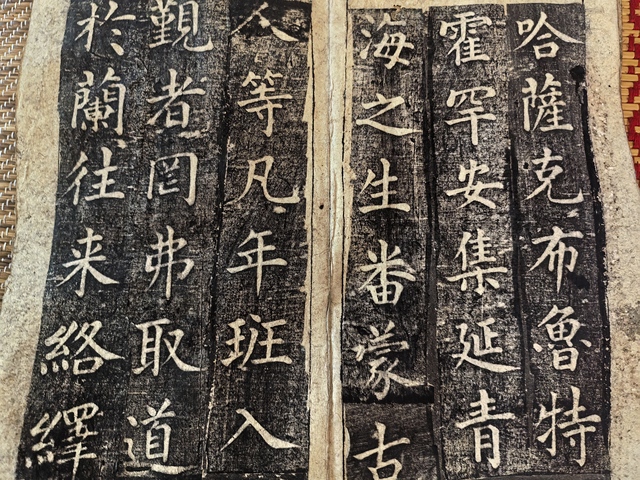 哈薩克布魯特
霍罕安集延青
海之生番蒙古
人等凡年班入
覲者罔弗取道
於蘭往来絡繹